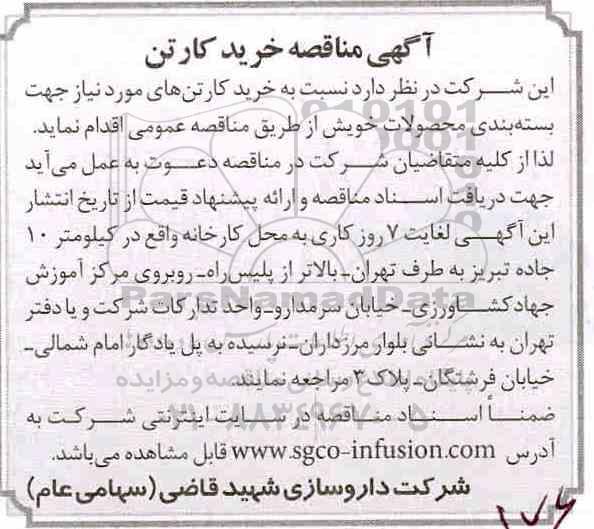 آگهی مناقصه خرید کارتن
این شرکت در نظر دارد نسبت به خرید کارتن‌های مورد نیاز جهت
بسته‌بندی محصولات خویش از طریق مناقصه عمومی اقدام نماید.
لذا از کلیه متقاضیان شرکت در مناقصه دعوت به عمل می‌آید
جهت دریافت اسناد مناقصه و ارائه پیشنهاد قیمت از تاریخ انتشار
این آگهی لغایت ۷ روز کاری به محل کارخانه واقع در کیلومتر ۱۰
جاده تبریز به طرف تهران-بالاتر از پلیس‌راه-روبروی مرکز آموزش
جهاد کشاورزی-خیابان سرمدارو-واحد تدارکات شرکت و یا دفتر
تهران به نشانی بلوار مرزداران-نرسیده به پل یادگار امام شمالی-
خیابان فرشتگان-پلاک ۳ مراجعه نمایند.
ضمناً اسناد مناقصه در سایت اینترنتی شرکت به
آدرس www.sgco-infusion.com قابل مشاهده می‌باشد.
شرکت داروسازی شهید قاضی (سهامی عام)
ParsNamadData